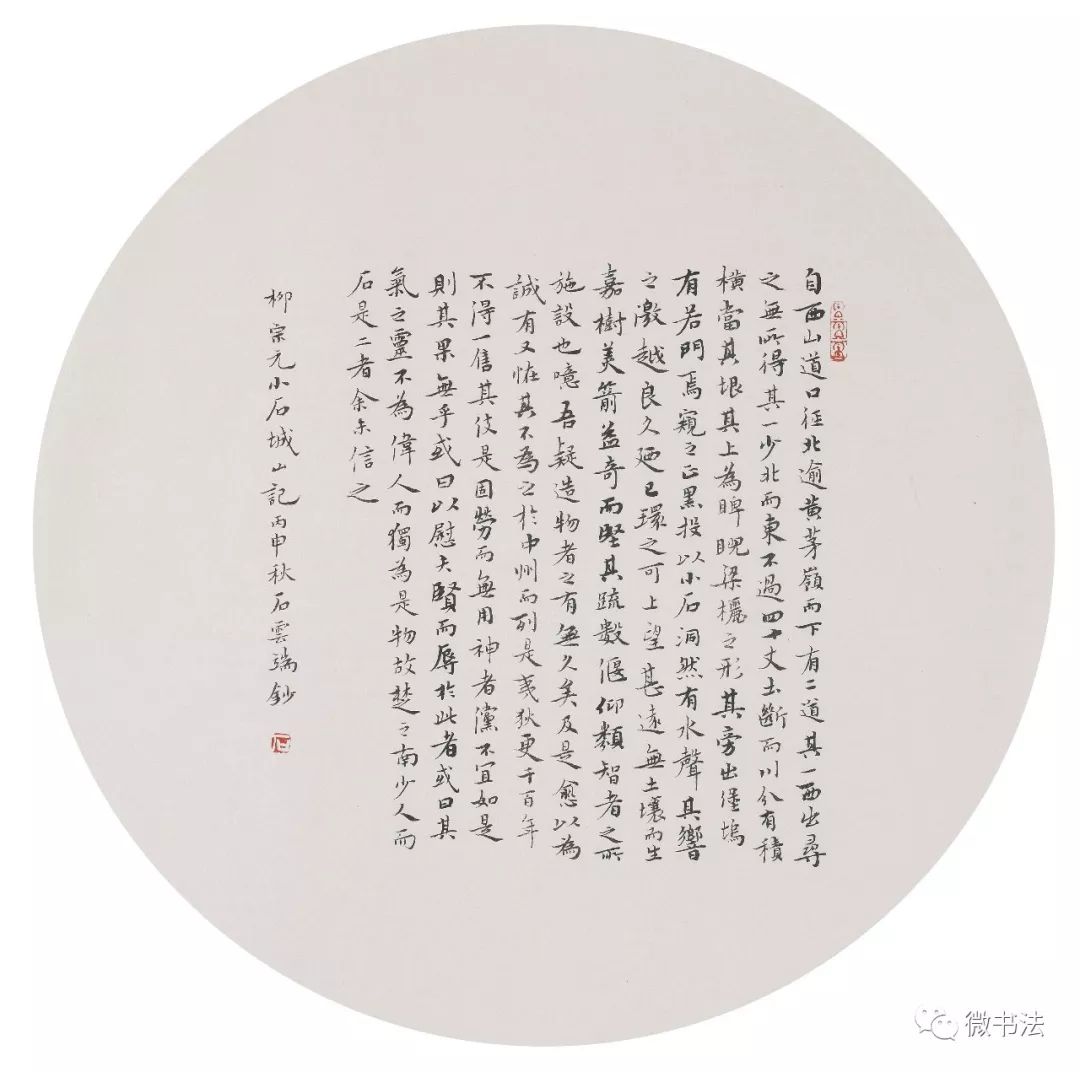 自西山道口徑北逾黄茅嶺而下有二道其一西出尋
之無所得其一少北而東不過四十丈土斷而川分有積
橫當其垠其上為睥睨梁欐之形其旁出堡塢
有若門焉窺之正黑投以小石洞然有水聲其響
之激越良久廼已環之可上望甚遠無土壤而生
嘉樹美箭益奇而堅其疏數偃仰類智者之所
施設也噫吾疑造物者之有無久矣及是愈以為
誠有又怪其不為之於中州而列是夷狄更千百年
不得一售其伎是固勞而無用神者儻不宜如是
則其果無乎或曰以慰夫賢而辱於此者或曰其
氣之靈不為偉人而獨為是物故楚之南少人而
石是二者余未信之
柳宗元小石城山記丙申秋石雲端鈔
石
微书法